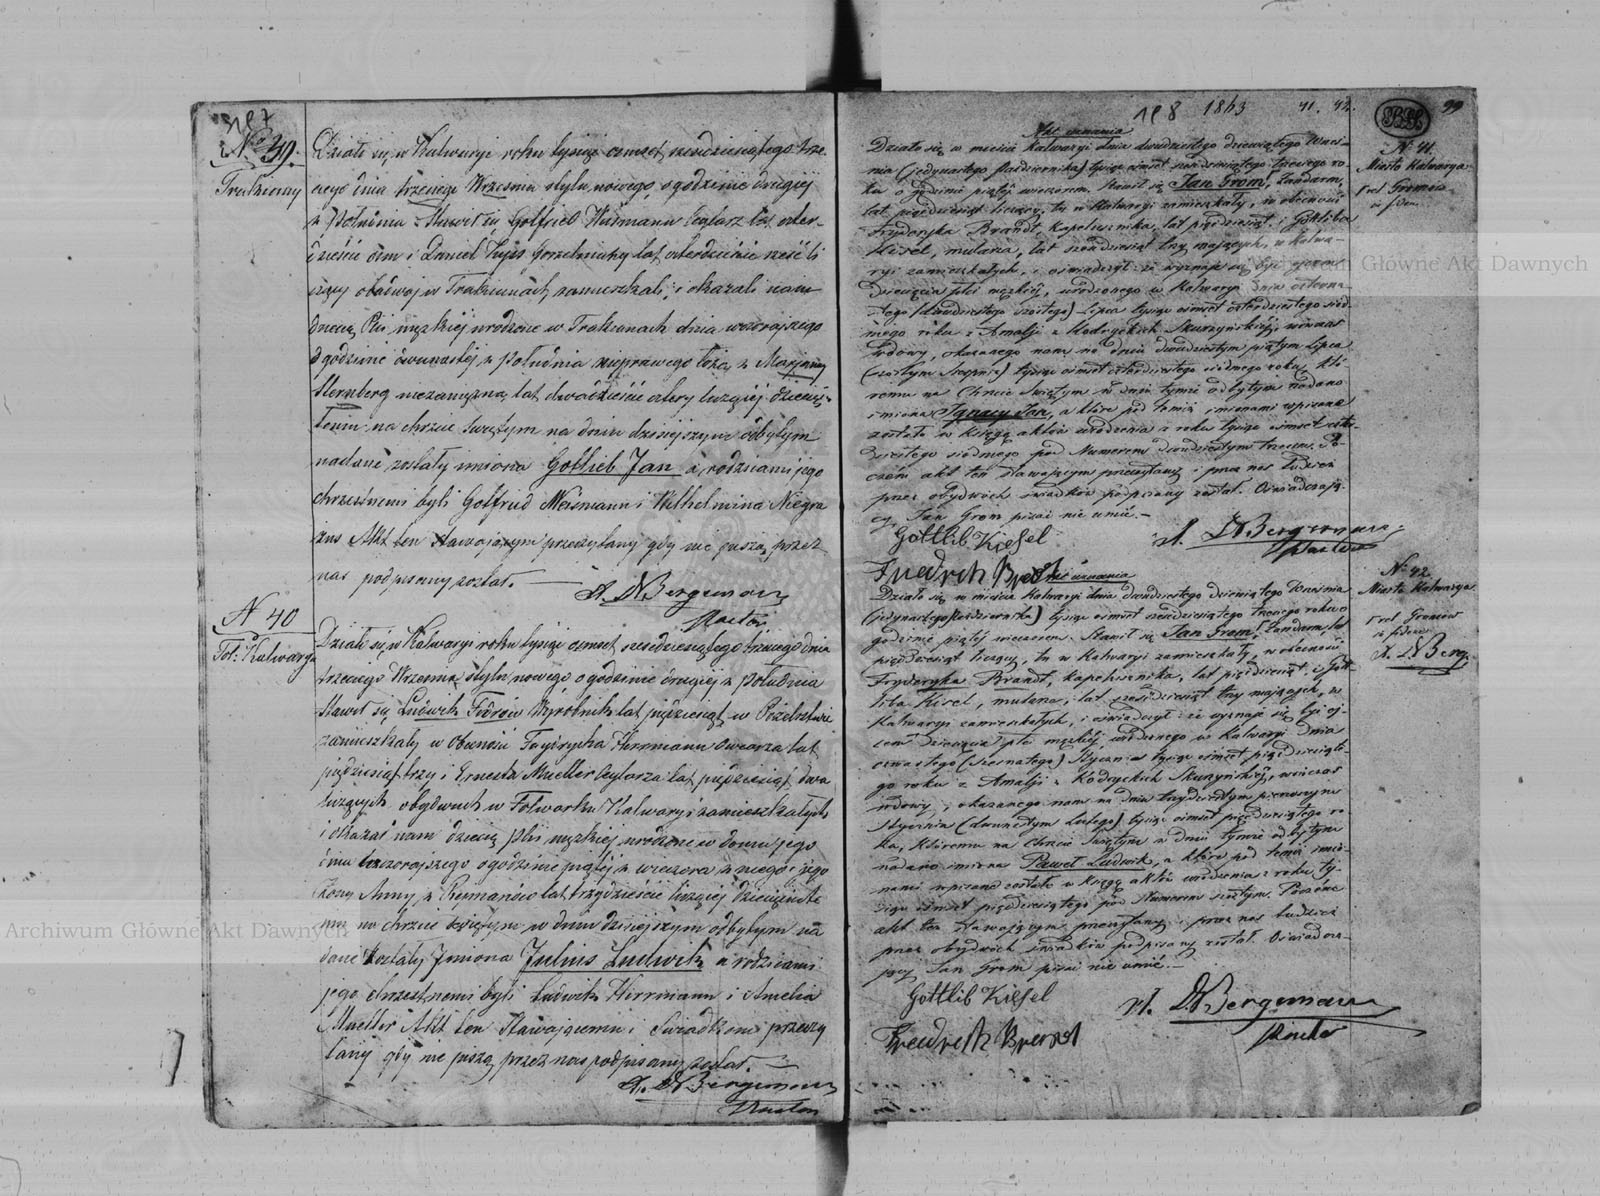 187
№ 39.
Trakieny
Działo się w Kalwaryi roku tysiąc ośmset sześćdziesiątego trze-
ciego dnia trzeciego Września stylu nowego o godzinie drugiej
z południa Stawił się Gottfried Weismann Ceglarz lat czter-
dzieści ośm i Daniel gorzelniany lat czterdzieście sześć li
czący obadwaj w Trakienach zamieszkali, i okazali nam
dziecię Płci męzkiej urodzone w Trakienach dnia wczorajszego
o godzinie dwunastej z południa nieprawego łoża z Maryanny
Sternberg niezamężnej lat dwadzieście cztery liczącej dziecię-
temu na chrzcie świętym na dniu dzisiejszym odbytym
nadane zostały imiona Gottlieb Jan a rodzicami jego
chrzestnemi byli Gottfried Weismann i Wilhelmina Niegra
zus Akt ten stawającym przeczytany gdy nie piszą przez
nas podpisany został.
X. D Bergemann
Pastor
N 40
Fol: Kalwarya
Działo się w Kalwaryi roku tysiąc ośmset sześćdziesiątego trzeciego dnia
trzeciego Września stylu nowego o godzinie drugiej z południa
Stawił się Ludwik Wyrobnik lat pięćdziesiąt w
zamieszkały w Obecności Fryderyka Herrmann Owczarza lat
pięćdziesiąt trzy i Ernesta Mueller Ceglarza lat pięćdziesiąt dwa
liczących obydwuch w Folwarku Kalwaryi zamieszkałych
i okazał nam dziecię płci męzkiej urodzone w domu jego
dnia wczorajszego o godzinie piątej z wieczora z niego i jego
żony Anny z lat trzydzieście liczącej Dziecięciu te
mu na chrzcie świętym w dniu dzisiejszym odbytym na
dane zostały Imiona Julius Ludwik a rodzicami
jego chrzestnemi byli Ludwik Herrmann i Amelia
Mueller Akt ten Stawającemu i Świadkom przeczy
tany gdy nie piszą przez nas podpisany został.
X. D Bergemann
Pastor
188 1863 41. 42. 99
Akt uznania
№ 41.
Miasto Kalwarya
Działo się w mieście Kalwaryi dnia dwudziestego dziewiątego Wrześ-
nia (jedynastego Października) tysiąc ośmset sześćdziesiątego trzeciego ro-
ku o godzinie piątej wieczorem. Stawił się Jan Grom, Żandarm,
lat pięćdziesiąt liczący, tu w Kalwaryi zamieszkały, w obecności
Fryderyka Brandt, kapelusznika, lat pięćdziesiąt i Gottliba
Kisel, mularza, lat sześćdziesiąt trzy mających, w Kalwa-
ryi zamieszkałych, i oświadczył: iż wyznaje się być ojcem
dziecięcia płci męzkiej, urodzonego w Kalwaryi dnia
tego (dwudziestego szóstego) Lipca tysiąc ośmset czterdziestego siód-
mego roku z Amalji z Kodryckich Skurzyńskiej, wówczas
wdowy, okazanego nam na dniu dwudziestym piątym Lipca
(szóstym Sierpnia) tysiąc ośmset czterdziestego siódmego roku, któ-
remu na Chrzcie Świętym w dniu tymże odbytym nadano
imiona Ignacy Jan, a które pod temiż imionami wpisane
zostało w księgę aktów urodzenia z roku tysiąc ośmset czter-
dziestego siódmego pod Numerem dwudziestym trzecim. Po-
czem akt ten stawającym przeczytany i przez nas tudzież
przez obydwóch świadków podpisany został. Oświadczają-
cy Jan Grom pisać nie umié.
Gottlib Kiesel
X. D Bergemann
Pastor
Friedrich Brandt
Akt uznania
N: 42
Miasto Kalwarya
Działo się w mieście Kalwaryi dnia dwudziestego dziewiątego Września
(jedynastego Października) tysiąc ośmset sześćdziesiątego trzeciego roku o
godzinie piątej wieczorem. Stawił się Jan Grom, Żandarm, lat
pięćdziesiąt liczący, tu w Kalwaryi zamieszkały, w obecności
Fryderyka Brandt, kapelusznika, lat pięćdziesiąt i Gott-
liba Kisel, mularza, lat sześćdziesiąt trzy mających, w
Kalwaryi zamieszkałych, i oświadczył: iż wyznaje się być oj-
cem dziecięcia płci męzkiej, urodzonego w Kalwaryi dnia
czwartego (szesnatego) Stycznia tysiąc ośmset pięćdziesiąte-
go roku z Amalji z Kodryckich Skurzyńskiej, wówczas
wdowy, okazanego nam na dniu trzydziestym pierwszym
Stycznia (dwunastym Lutego) tysiąc ośmset pięćdziesiątego ro
ku, któremu na Chrzcie Świętym w dniu tymże odbytym
nadano imiona Paweł Ludwik, a które pod temiż imio-
nami wpisane zostało w księgę aktów urodzenia z roku ty-
siąc ośmset pięćdziesiątego pod Numerem szóstym. Poczém
akt ten stawającym przeczytany i przez nas tudzież
przez obydwóch świadków podpisany został. Oświadcza-
jący Jan Grom pisać nie umié.
Gottlib Kiesel
X. D Bergemann
Pastor
Friedrich Brandt
X. D Berg.
Archiwum Główne Akt Dawnych
Archiwum Główne Akt Dawnych